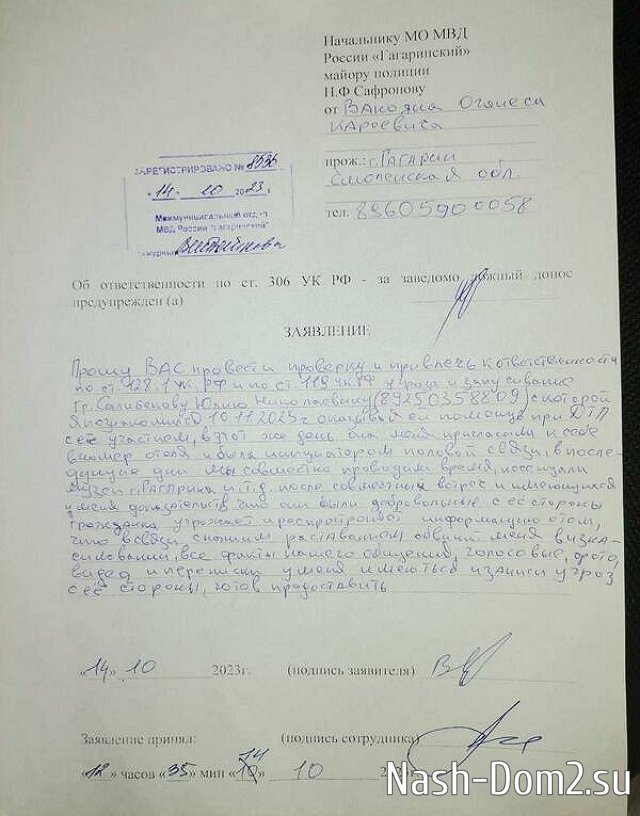 Начальнику МО МВД
России «Гагаринский»
майору полиции
Н.Ф Сафронову
от Ванояна Оганеса
Кареевича
прож.: г. Гагарин
Смоленская обл.
тел. 89605900058
ЗАРЕГИСТРИРОВАНО № 8536
"14" 10 2023 г.
Межмуниципальный отдел
МВД России "Гагаринский"
Дежурный
Об ответственности по ст. 306 УК РФ - за заведомо ложный донос
предупрежден (а)
ЗАЯВЛЕНИЕ
Прошу ВАС провести проверку и привлечь к ответственности
по ст. 128.1 УК РФ и по ст 119 УК РФ угроза и запугивание
гр. Салибекову Юлию Николаевну (89250358809) с которой
я познакомился 10.11.2023 г оказывая ей помощь при ДТП
с её участием, в этот же день она меня пригласила к себе
в номер отеля и была инициатором половой связи, в после-
дующие дни мы совместно проводили время, посещали
музеи г. Гагарина и.т.д. после совместных встреч и имеющихся
у меня доказательств что они были добровольные с её стороны
гражданка угрожает и распространяет информацию о том,
что в связи с нашим раставанием обвинит меня в изна-
силовании, все факты нашего общения, голосовые, фото,
видео и переписки у меня имеються и записи угроз
с её стороны, готов предоставить
«14» 10 2023г. (подпись заявителя)
Заявление принял: (подпись сотрудника)
«12» часов «35» мин «14» 10
Nash-Dom2.su